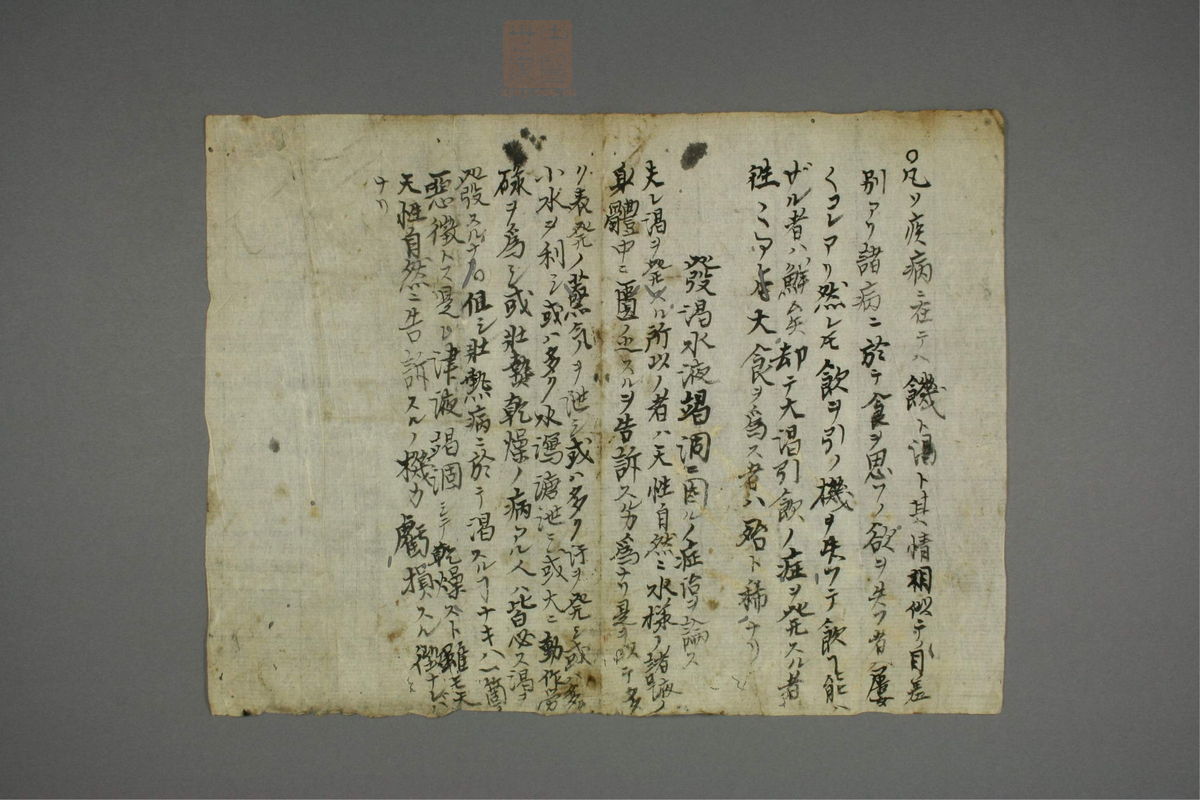 〇凡ソ疾病ニ在テハ饑ト渇ト其情相似テ自差
別アリ諸病ニ於テ食ヲ思フノ欲ヲ失フ者屢
〱コレアリ然レモ飲ヲ引ノ機ヲ失ツテ飲ム能ハ
ザル者ハ鮮矣却テ大渇引飲ノ症ヲ発スル者
往〻アリ大食ヲ為ス者ハ殆ト稀ナリ
発渇水液竭涸ニ因ルノ症治ヲ論ス
夫レ渇ヲ発スル所以ノ者ハ天性自然ニ水様ノ諸液ノ
身體中ニ匱乏スルヲ告訴スル為ナリ是ヲ以テ多
ク表発ノ蒸気ヲ泄シ或ハ多ク汗ヲ発シ或ハ多ク
小水ヲ利シ或ハ多ク水瀉溏泄シ或大ニ動作労
碌ヲ為シ或壮熱乾燥ノ病アル人ハ皆必ス渇ヲ
発スルナリ但シ壮熱病ニ於テ渇スルヿナキハ一箇ノ
悪徴トス是レ津液竭涸シテ乾燥スト雖モ天
天性自然ニ告訴スルノ機力虧損スル徴ナレハ
ナリ